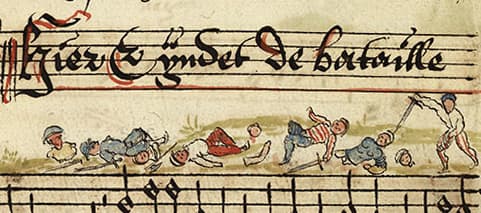 Hier Eyndet de bataille